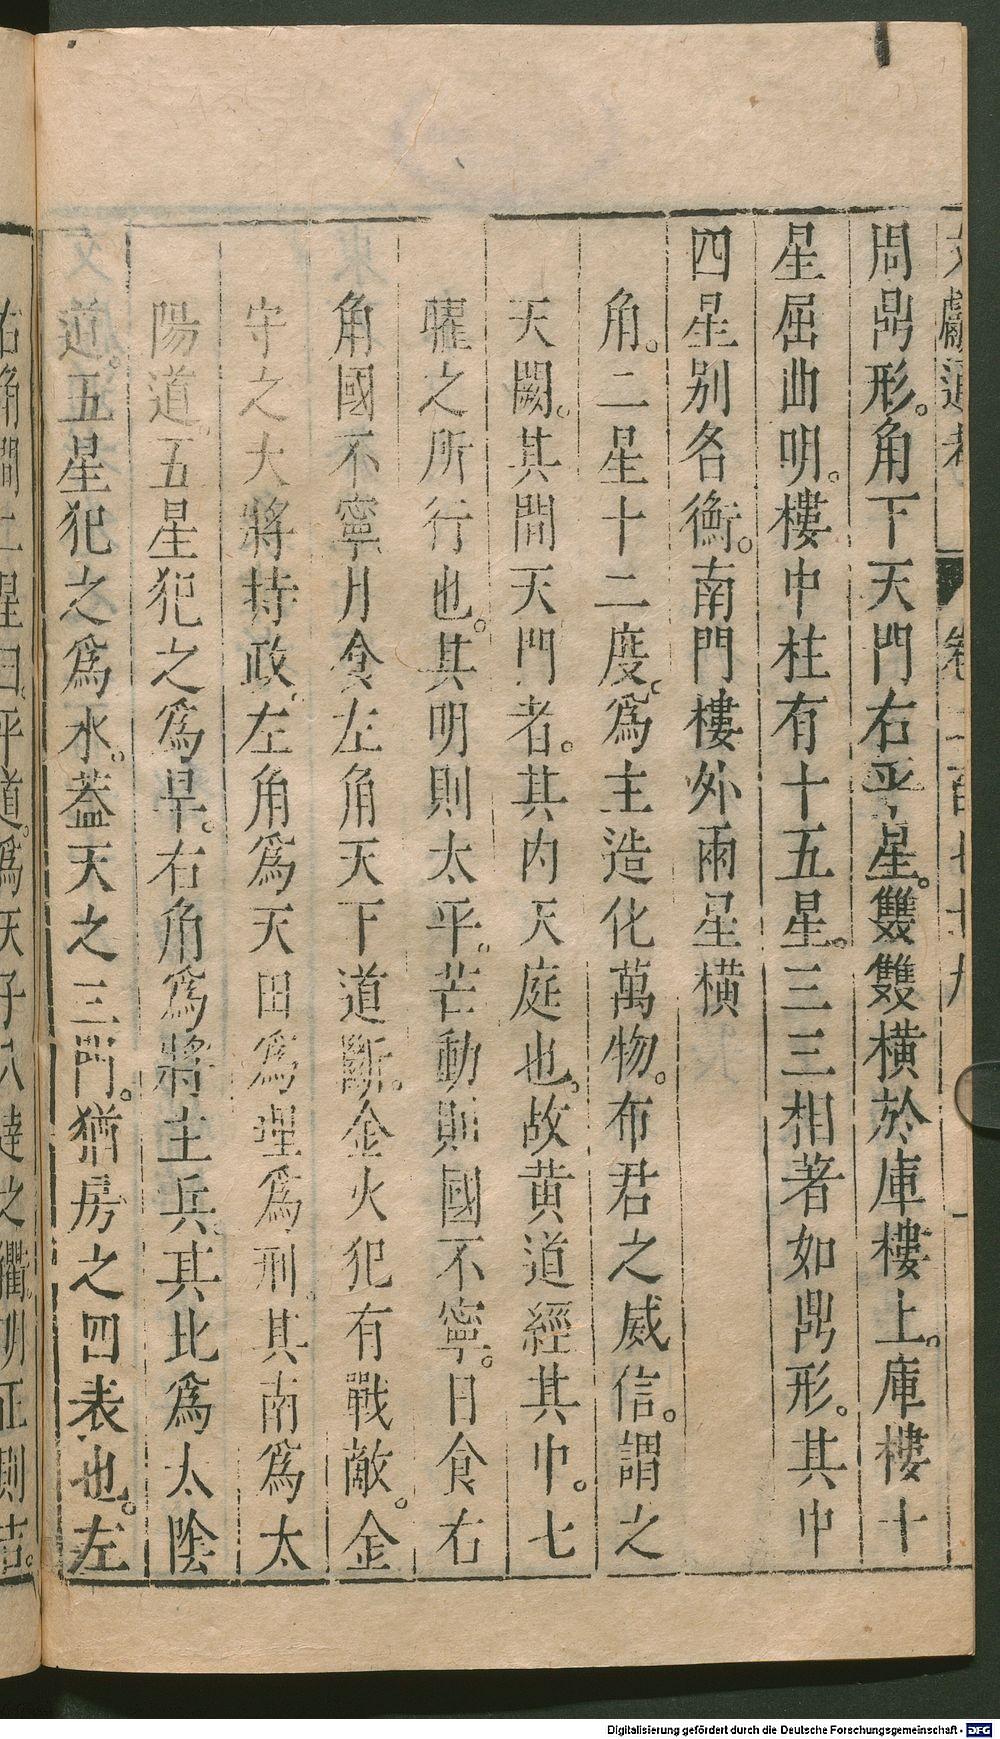 文獻通考 卷二百七十九 一
周鼎形。角下天門右平星。雙雙橫於庫樓上。庫樓十
星屈曲明。樓中柱有十五星。三三相著如鼎形。其中
四星別名衡。南門樓外兩星橫
角。二星十二度。爲主造化萬物。布君之威信。謂之
天闕。其間天門者。其內天庭也。故黃道經其中。七
曜之所行也。其明則太平。芒動則國不寧。日食右
角國不寧月食左角天下道斷。金火犯有戰敵。金
守之大將持政。左角爲天田爲理爲刑。其南爲太
陽道。五星犯之爲旱。右角爲將主兵。其北爲太陰
道。五星犯之爲水。蓋天之三門。猶房之四表也。左
右角間二星曰。平道。爲天子八達之衢。明正則吉。
Digitalisierung gefördert durch die Deutsche Forschungsgemeinschaft - DFG